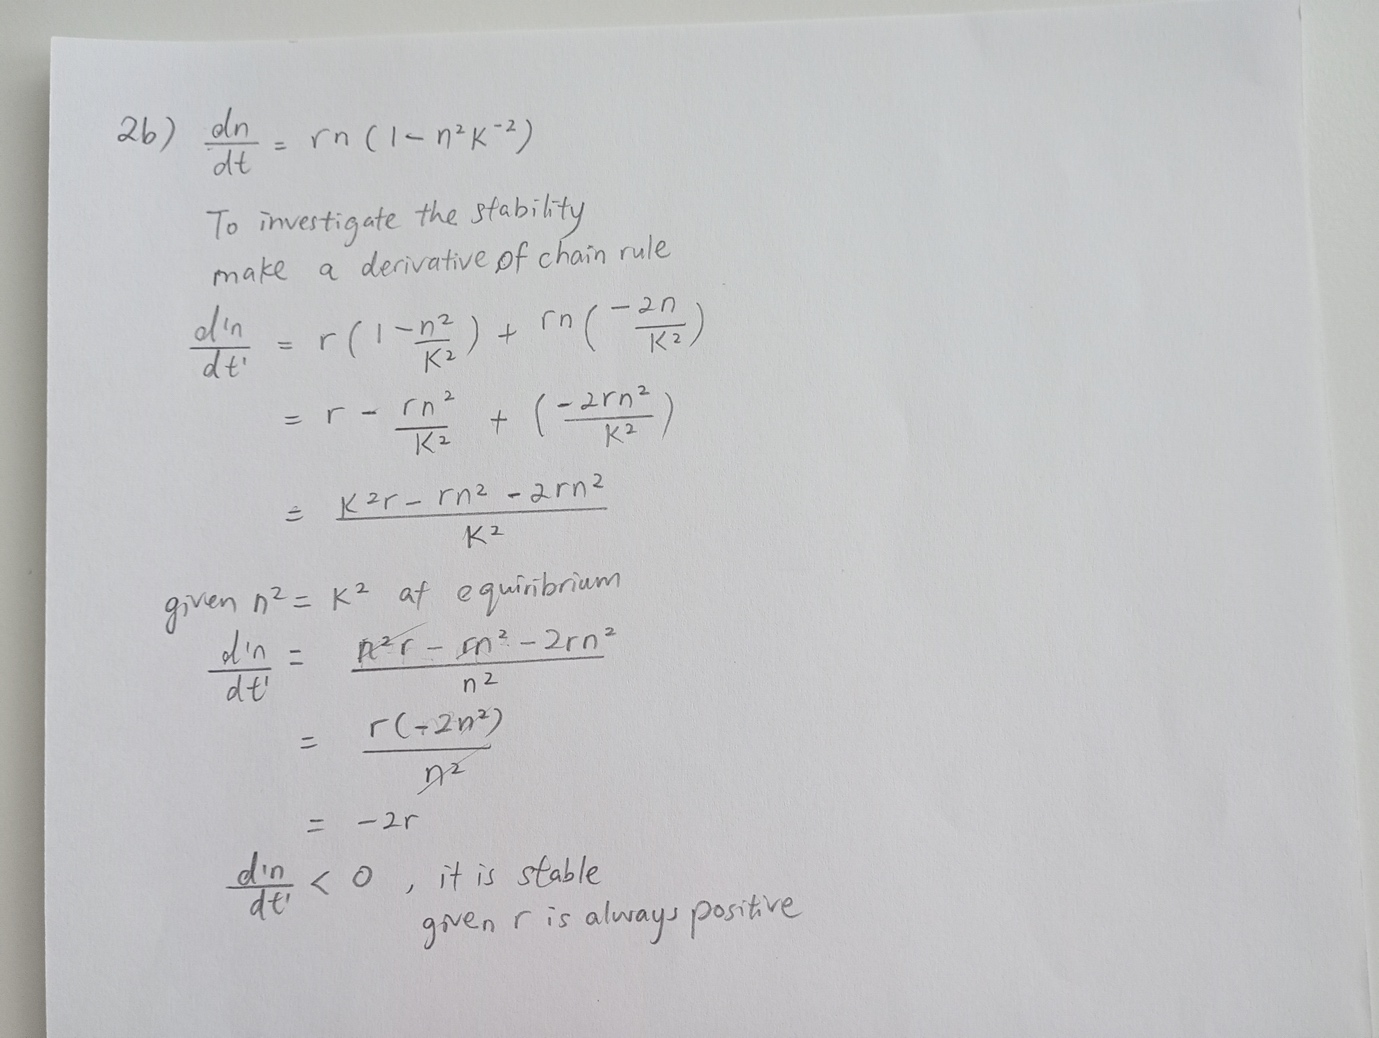 2b) dn/dt = rn(1-n²K⁻²)
To investigate the stability
make a derivative of chain rule
d'n/dt' = r(1-n²/K²) + rn(-2n/K²)
= r - rn²/K² + (-2rn²/K²)
= K²r - rn² - 2rn²/K²
given n² = K² at equiribrium
d'n/dt' = n²r - rn² - 2rn²/n²
= r(-2n²)/n²
= -2r
d'n/dt' < 0, it is stable
given r is always positive